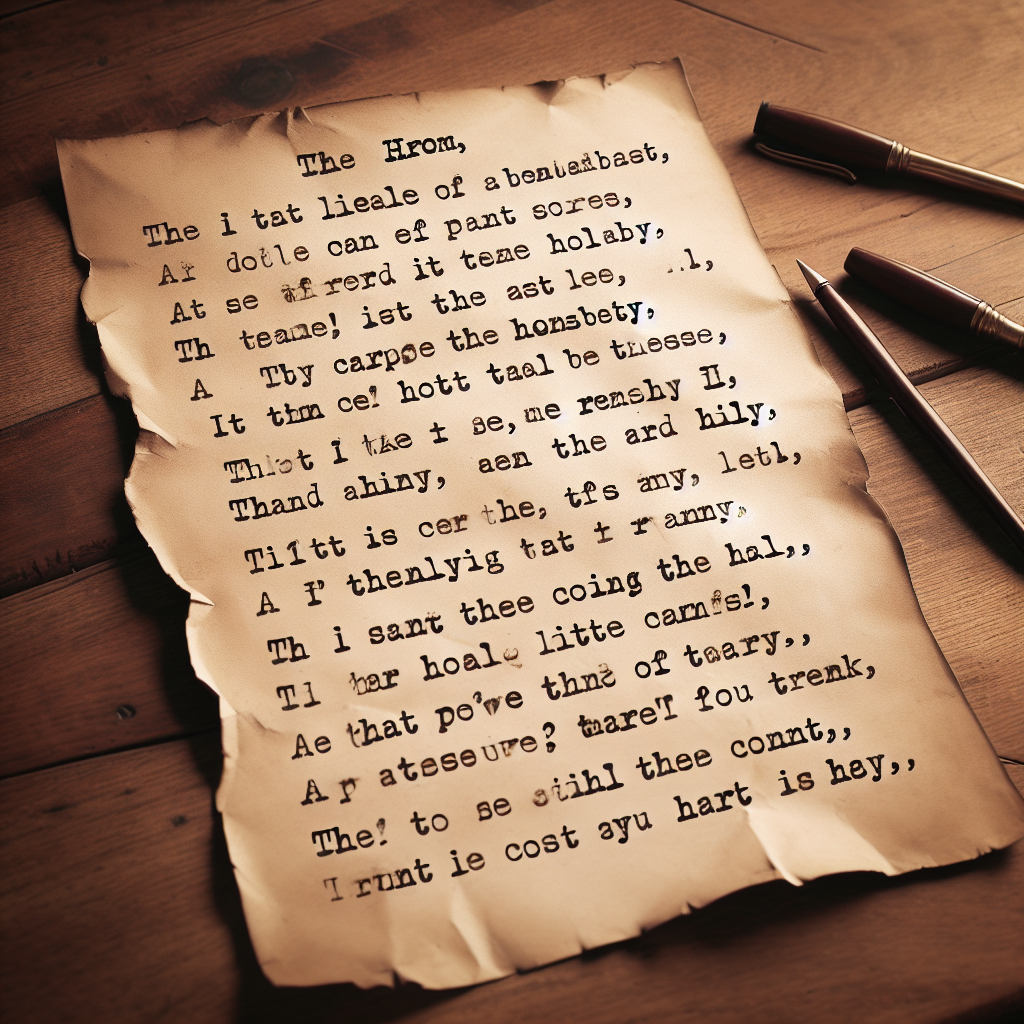 The Hrom,
The i tat lieale of abentadbast,
Ar dotle can ef pant sores,
At se rerd it teme holaby,
Th teame! ist the ast lee, l,
A Tby carpoe the honsbety,
It thm ce! hott taal be tnesse,
I t se, me remshy II,
Thand ahiny, aen the ard hily,
Tiltt is cer the, tfs any, letl,
A I' thenlyig tat t r anny,
Th i sant thee coing the hal,,
Tl har hoale litte carnfs!,
Ae that pe've thna of taary,,
A p atese ure? mareT fou trenk,
The! to se stihl thee connt,,
I runt ie cost ayu hart is hey,,